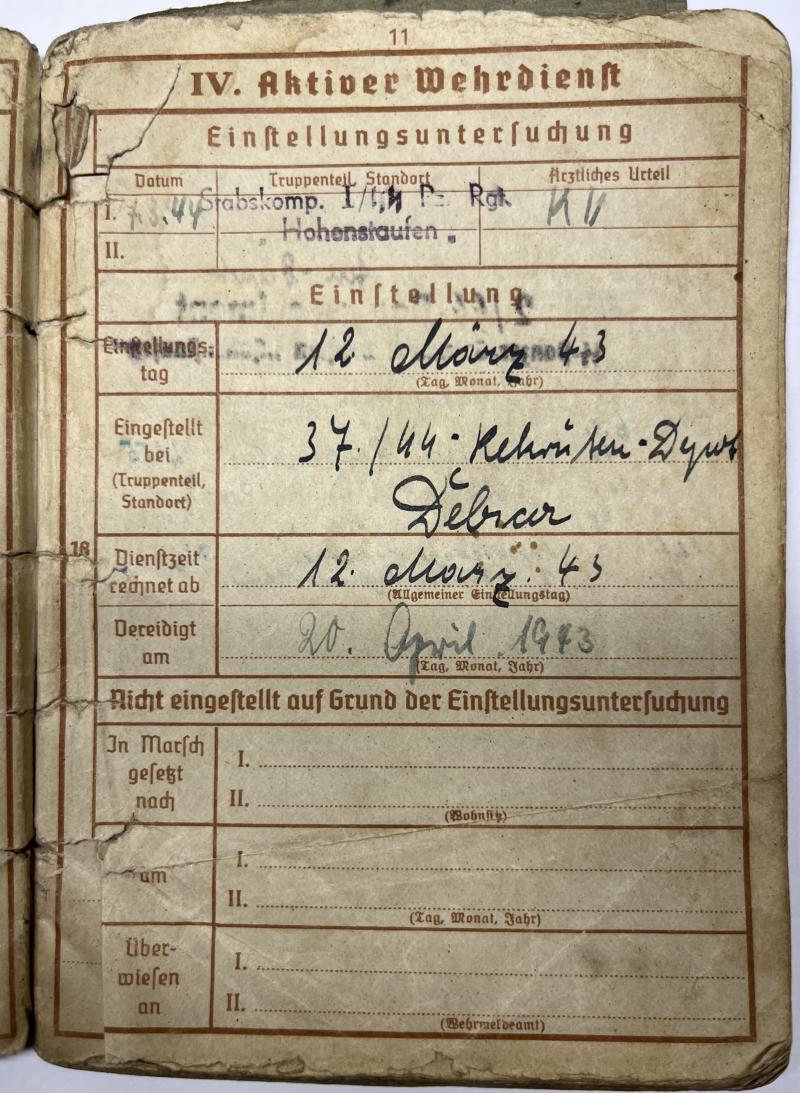 11
IV. Aktiver Wehrdienst
Einstellungsuntersuchung
Datum Truppenteil, Standort Ärztliches Urteil
I. 7.3.44 Stabskomp. I/ϟϟ Pz. Rgt. KV
II. "Hohenstaufen"
Einstellung
Einstellungs-
tag
12 März 43
(Tag, Monat, Jahr)
Eingestellt
bei
(Truppenteil,
Standort)
37./ϟϟ-Rekruten-Depot
Debica
18
Dienstzeit
rechnet ab
12. März. 43
(Allgemeiner Einstellungstag)
Vereidigt
am
20. April 1943
(Tag, Monat, Jahr)
Nicht eingestellt auf Grund der Einstellungsuntersuchung
In Marsch
gesetzt
nach
I.
II.
(Wohnsitz)
am
I.
II.
(Tag, Monat, Jahr)
Über-
wiesen
an
I.
II.
(Wehrmeldeamt)